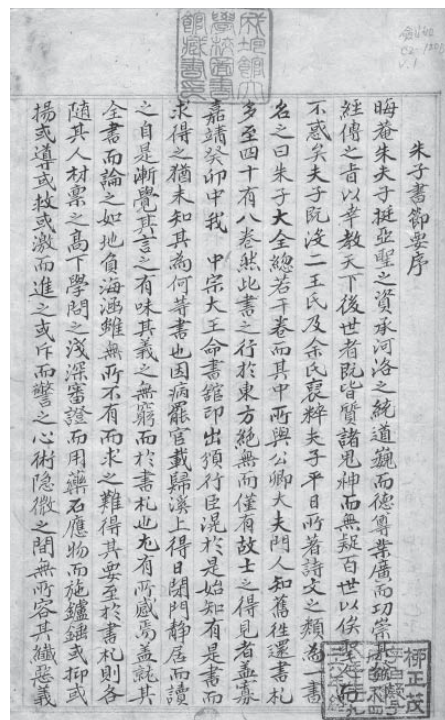 朱子書節要序
晦菴朱夫子挺亞聖之資承河洛之統道巍而德尊業廣而功崇其
經傳之旨以幸教天下後世者旣皆質諸鬼神而無疑百世以俟聖人而
不惑矣夫子旣沒二王氏及余氏裒稡夫子平日所著詩文之類爲一書
名之曰朱子大全總若干卷而其中所與公卿大夫門人知舊徃還書札
多至四十有八卷然此書之行於東方絶無而僅有故士之得見者盖寡
嘉靖癸卯中我 中宗大王命書舘印出頒行臣滉於是始知有是書而
求得之猶未知其爲何等書也因病罷官載歸溪上得日閉門静居而讀
之自是漸覺其言之有味其義之無窮而於書札也尤有所感焉盖就其
全書而論之如地負海涵雖無所不有而求之難得其要至於書札則各
隨其人材禀之高下學問之浅深審證而用藥石應物而施鑪錘或抑或
揚或導或救或激而進之或斥而警之心術隐微之間無所容其纎惡義
成均館大
學校圖書
館藏書印
柳正茂